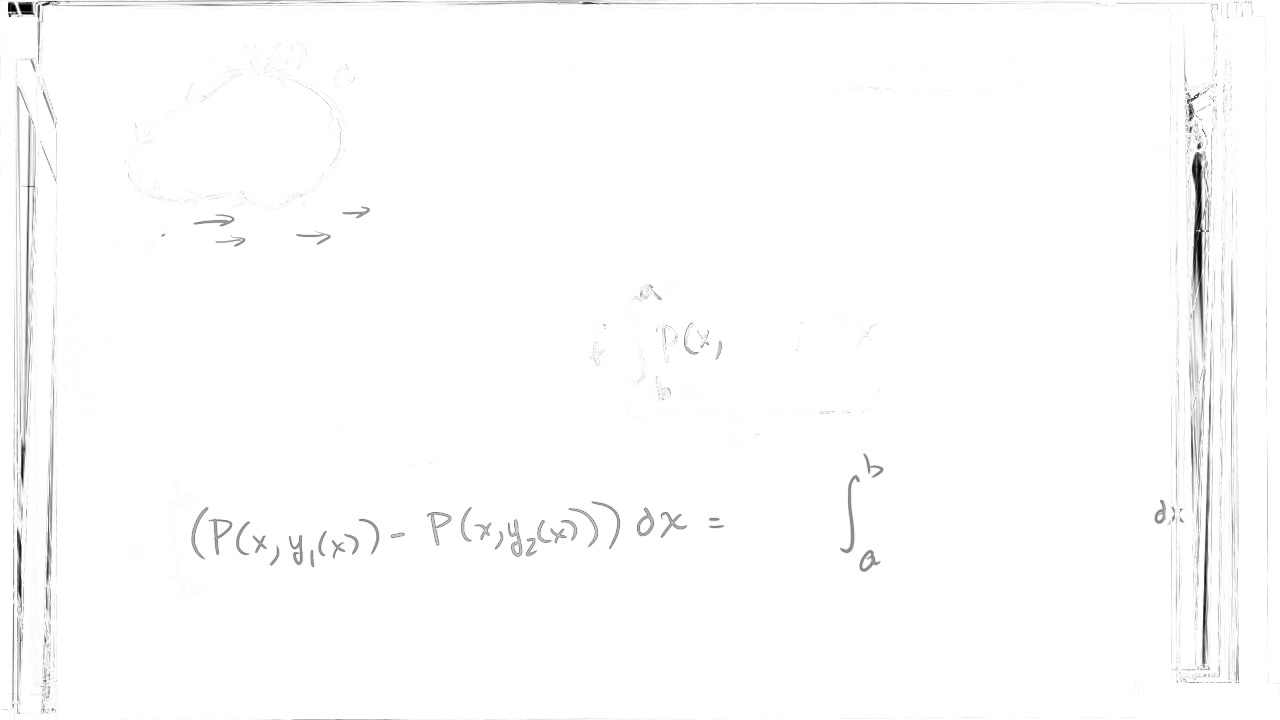 ∫_b^a P(x,
(P(x, y₁(x)) - P(x, y₂(x))) dx = ∫_a^b dx